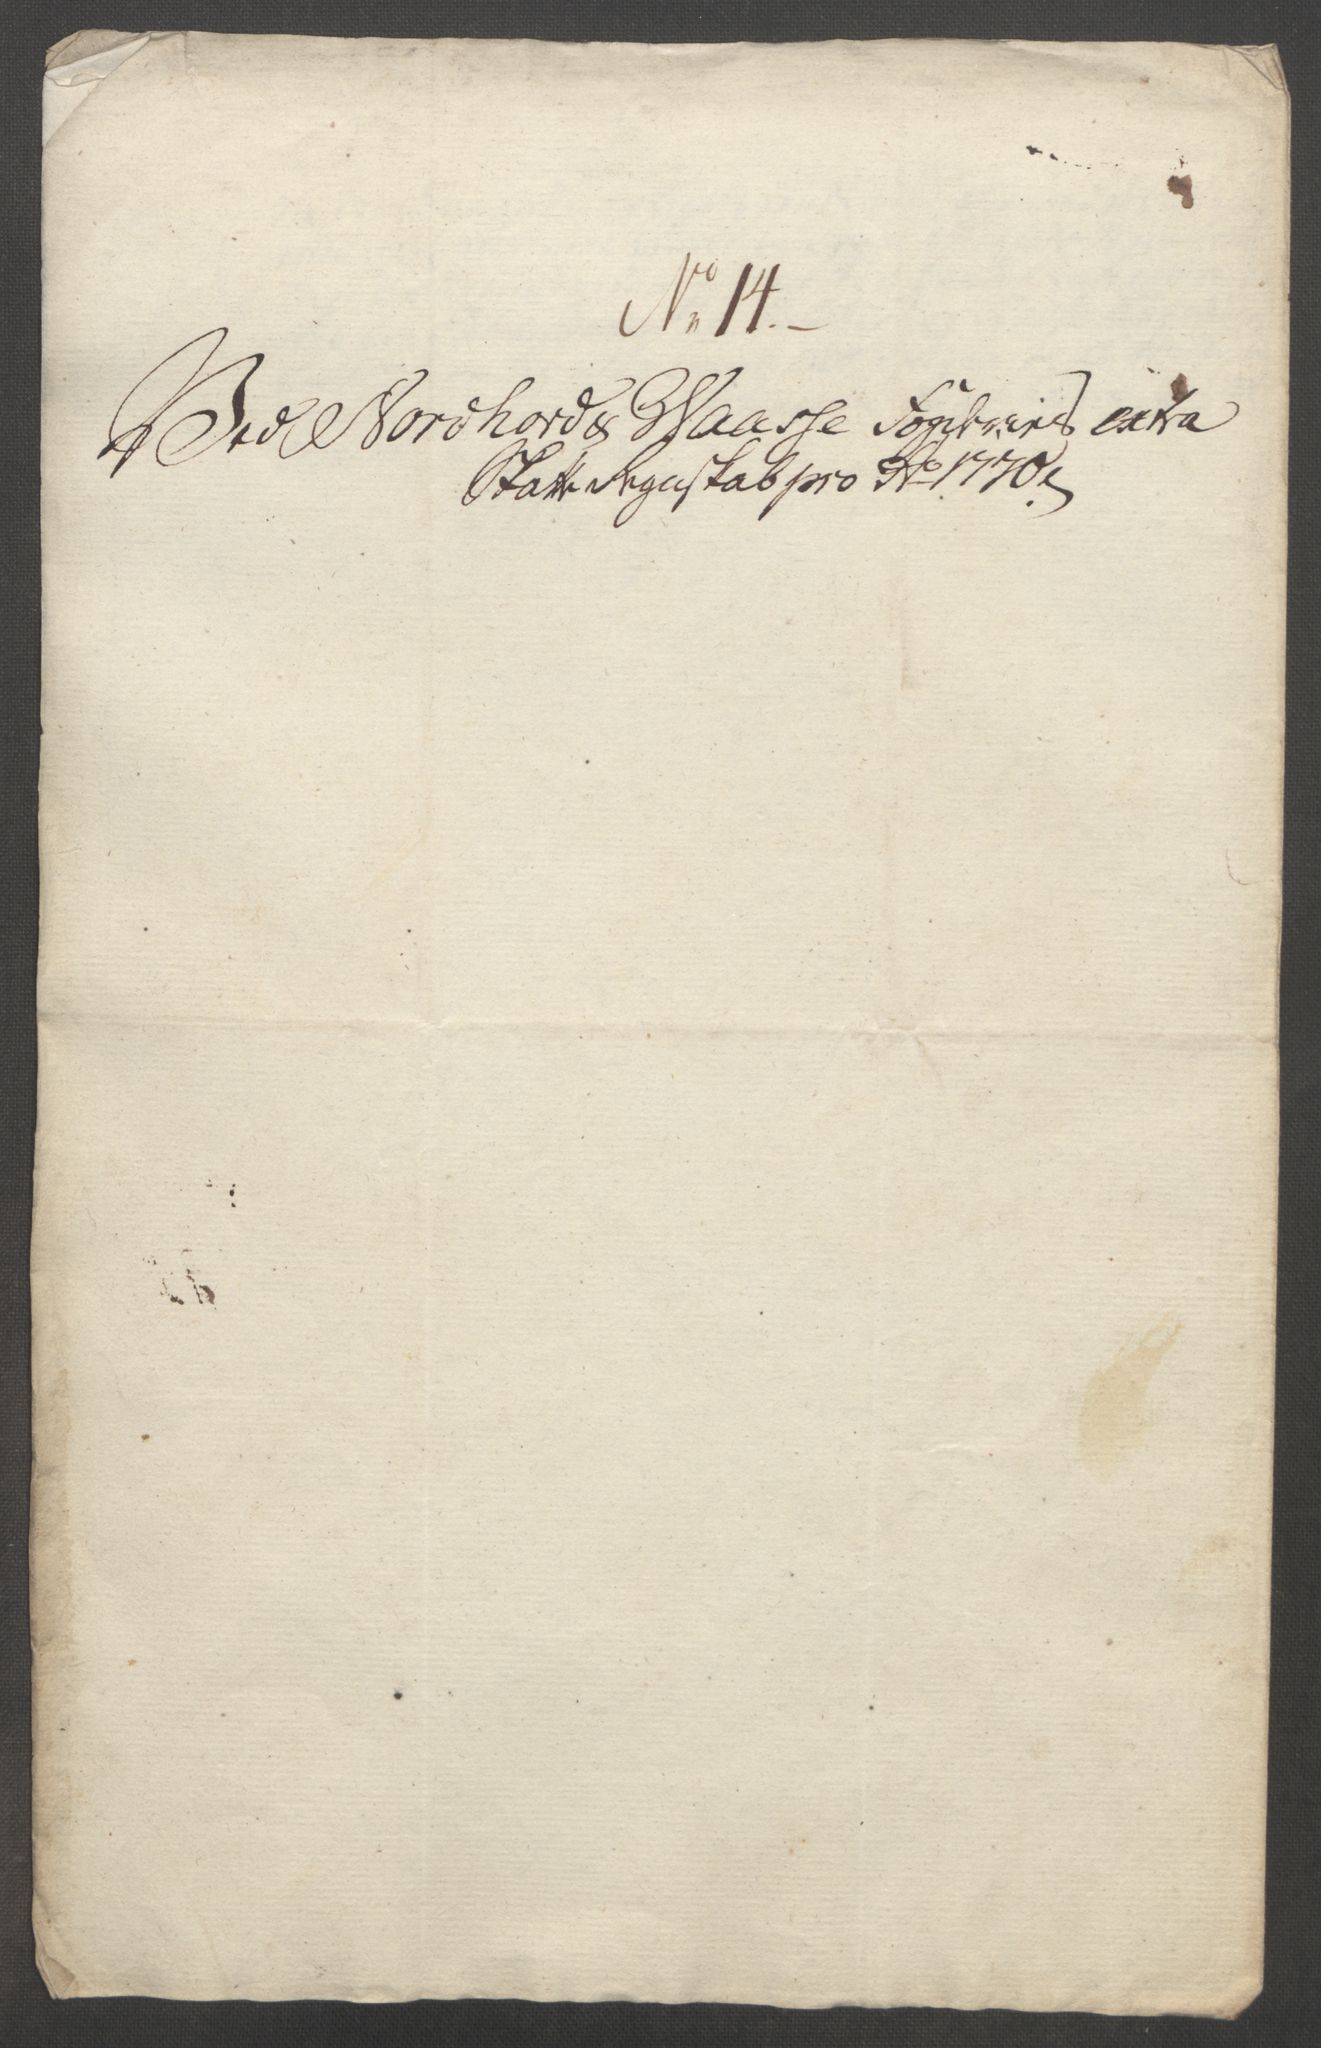 No 14.
Ved Nordhord & Waasse Fogderies extra
Skatte Regnskab pro Ao 1770